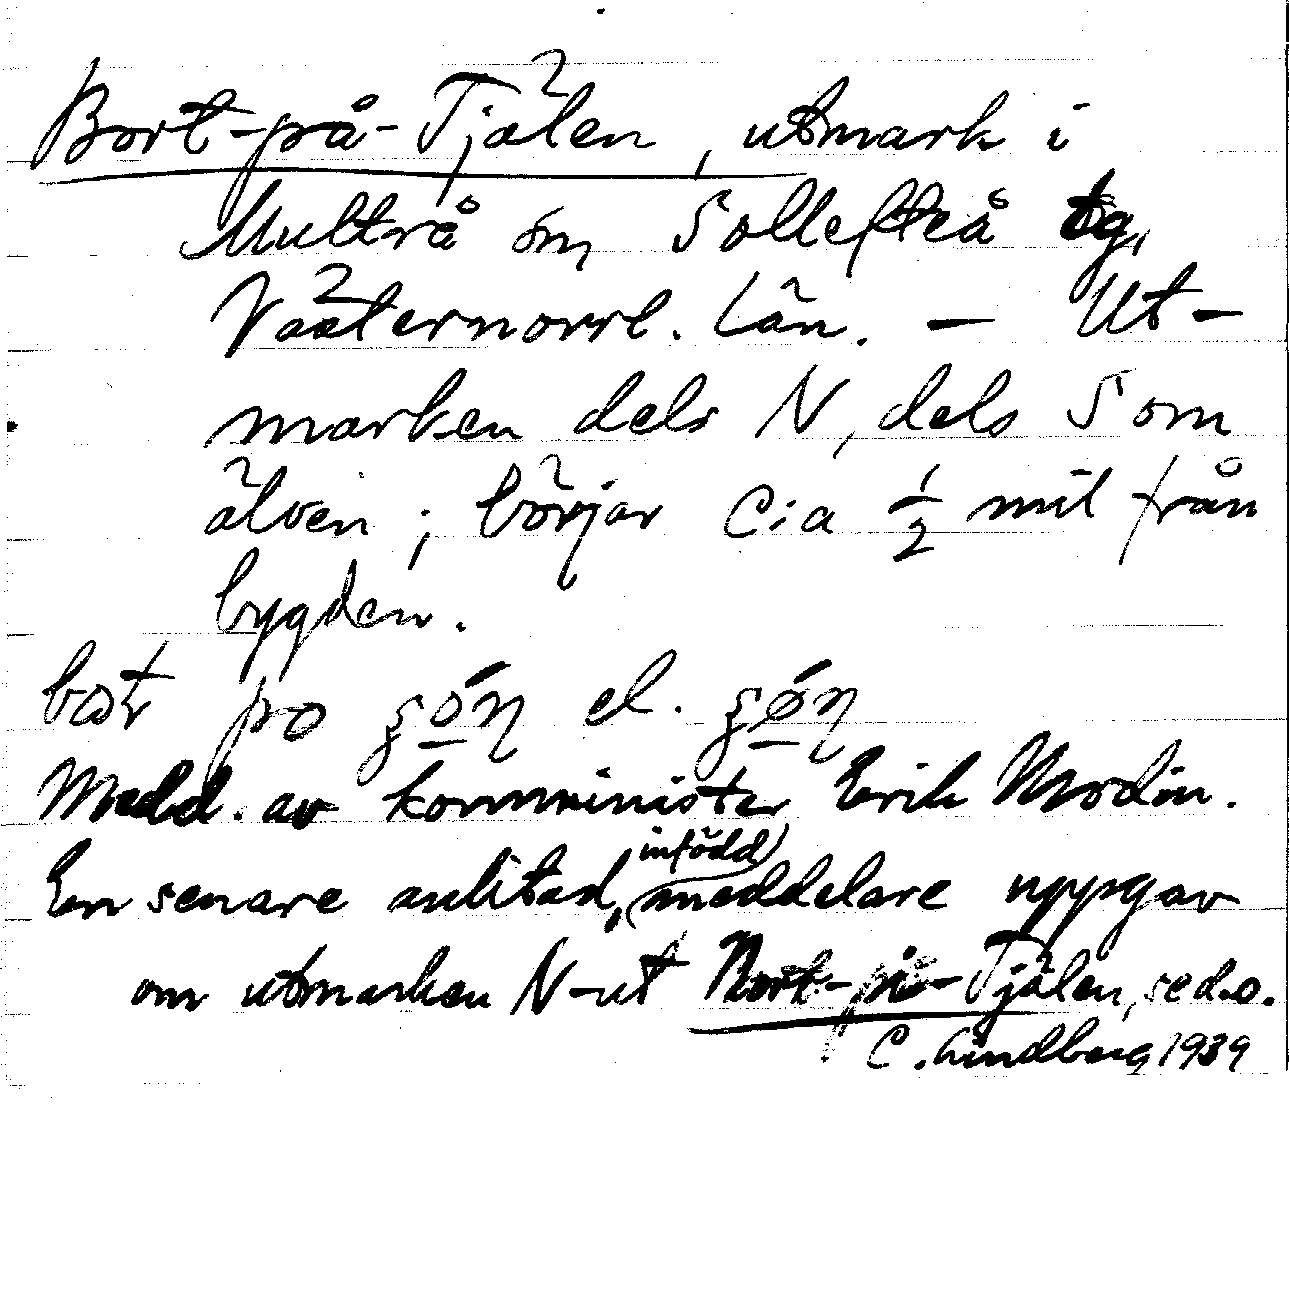 Bort-på-Tjälen, utmark i
Multrå sn, Sollefteå tg,
Västernorrl. län. – Ut-
marken dels N, dels S om
älven; börjar c:a 1/2 mil från
bygden.
po el.
Medd. av komminister Erik Modin.
En senare anlitad, infödd meddelare uppgav
om utmarken N-ut Nort-på-Tjälen, se d.o.
C. Lindberg 1939